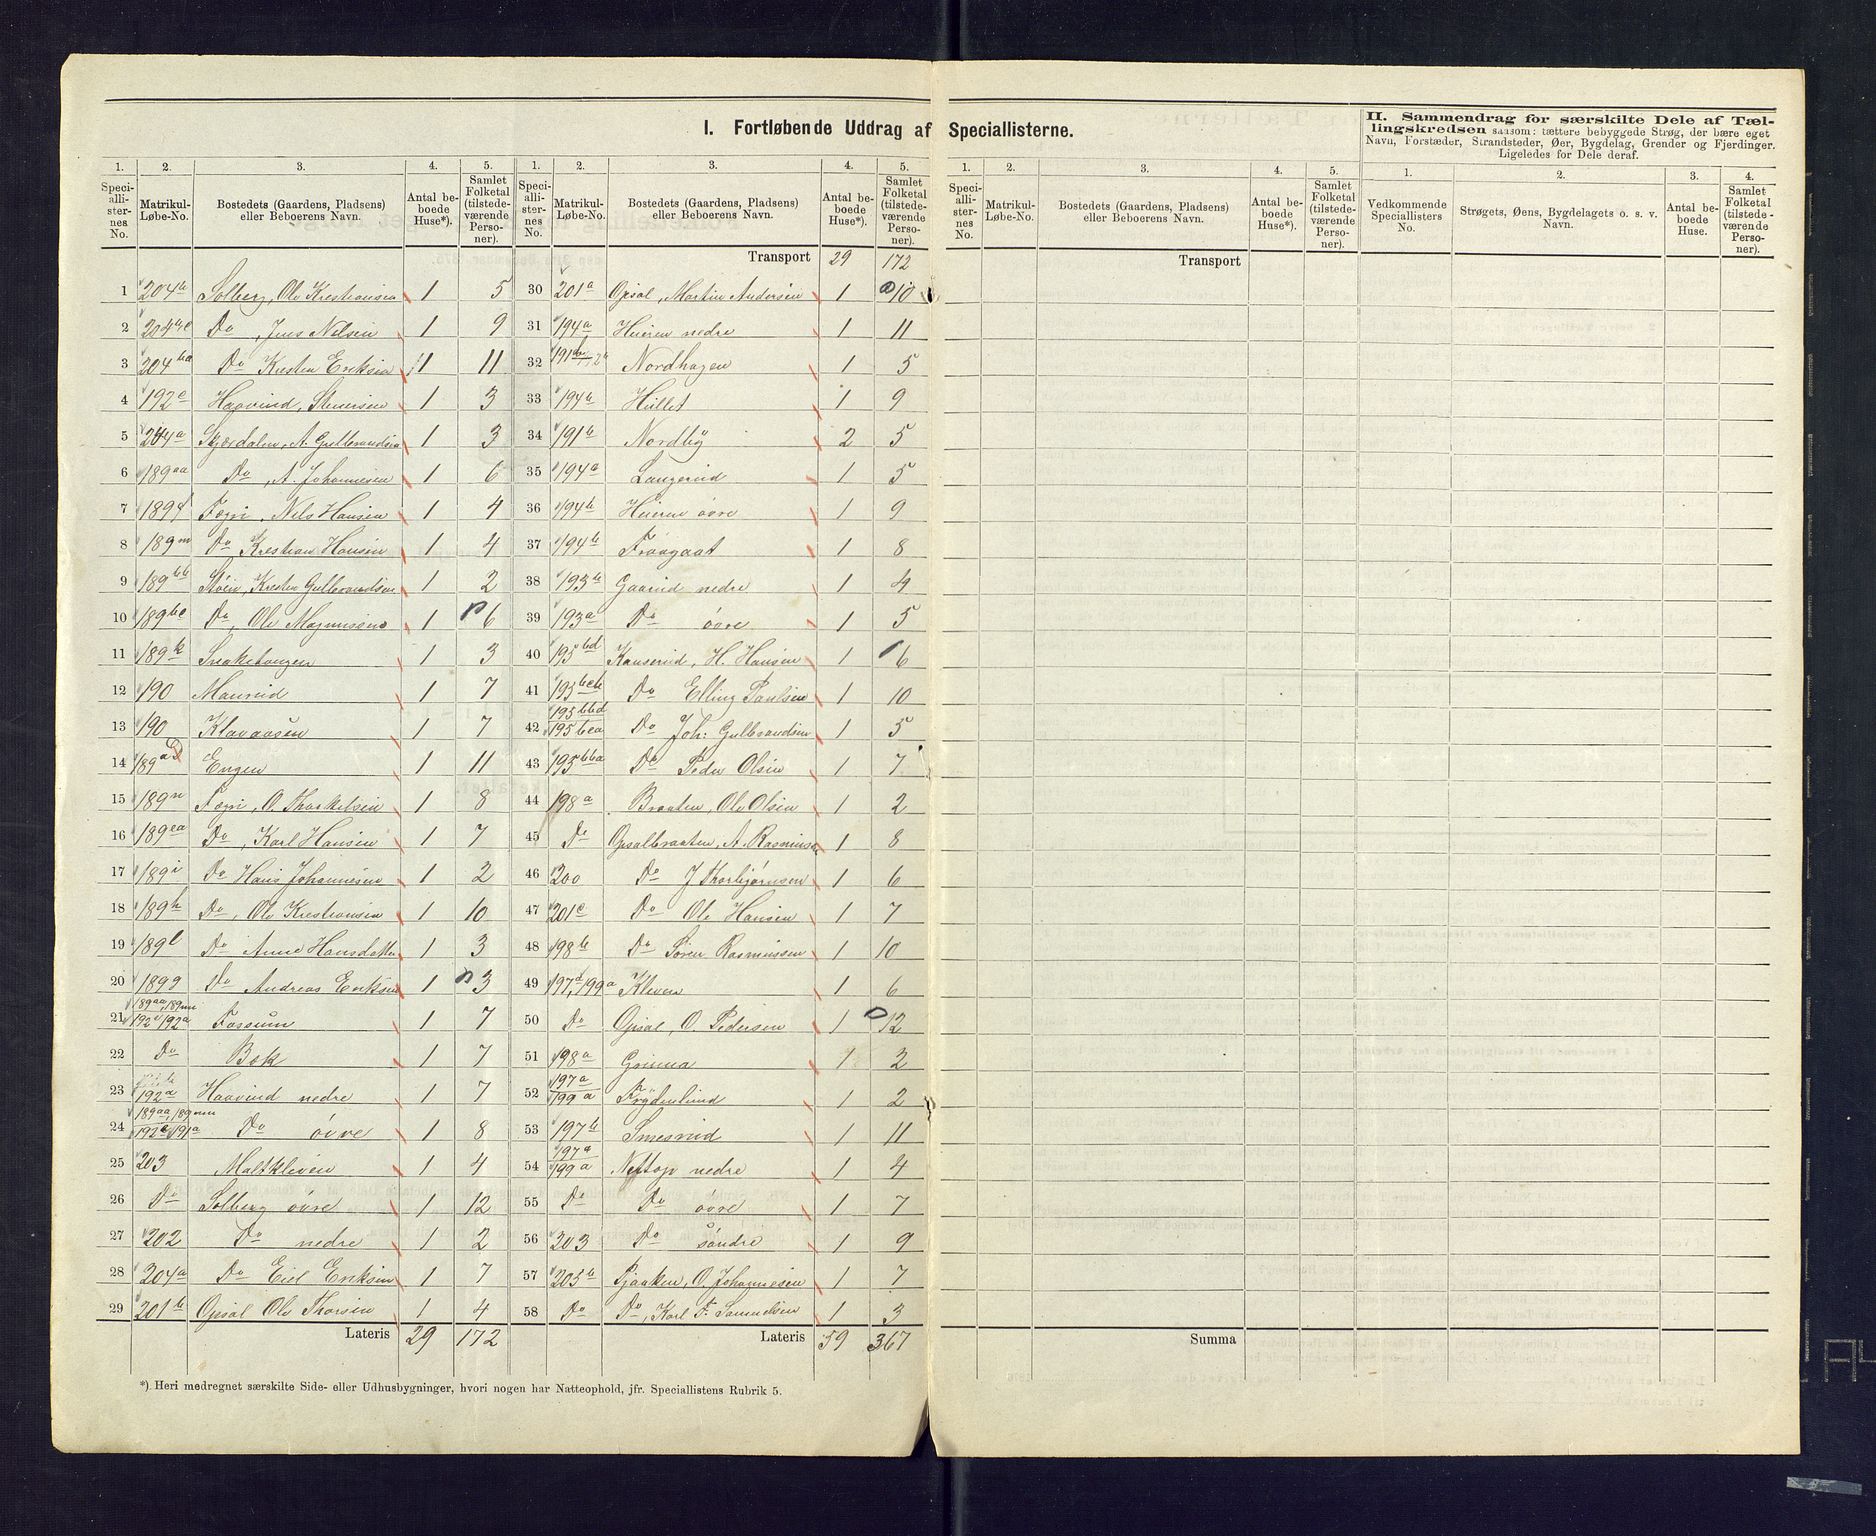 I. Fortløbende Uddrag af Speciallisterne.
II. Sammendrag for særskilte Dele af Tællingskredsen saasom: tættere bebyggede Strøg, der bære eget Navn, Forstæder, Strandsteder, Øer, Bygdelag, Grender og Fjerdinger. Ligeledes for Dele deraf.
1. 2. 3. 4. 5. 1. 2. 3. 4. 5. 1. 2. 3. 4. 5. 1. 2. 3. 4.
Speciallisternes No. Matrikul-Løbe-No. Bostedets (Gaardens, Pladsens) eller Beboerens Navn. Antal beboede Huse*). Samlet Folketal (tilstedeværende Personer).
Speciallisternes No. Matrikul-Løbe-No. Bostedets (Gaardens, Pladsens) eller Beboerens Navn. Antal beboede Huse*). Samlet Folketal (tilstedeværende Personer).
Speciallisternes No. Matrikul-Løbe-No. Bostedets (Gaardens, Pladsens) eller Beboerens Navn. Antal beboede Huse*). Samlet Folketal (tilstedeværende Personer).
Vedkommende Speciallisters No. Strøgets, Øens, Bygdelagets o. s. v. Navn. Antal beboede Huse. Samlet Folketal (tilstedeværende Personer).
1 204b Solberg, Ole Krestiansen 1 5
2 Do, Jens Nelsen 1 9
3 204ba Do Kresten Eriksen 1 11
4 192c Haavind, Stenersen 1 3
5 204a A. Gulbrandsen 1 3
6 189aa Do, A. Johannesen 1 6
7 189f Fegri, Nels Hansen 1 4
8 189m Do Krestian Hansen 1 4
9 189bb Støen, Kresten Gulbrandsen 1 2
10 189bc Do, Ole Magnussen 1 6
11 189k 1 3
12 190 Maurud 1 7
13 190 Klavaasen 1 7
14 189ad Engen 1 11
15 189n Fegri, O. Thorkelsen 1 8
16 189ea Do, Karl Hansen 1 7
17 189i Do Hans Johannesen 1 2
18 189h Do, Ole Krestiansen 1 10
19 189l Do Anne Hansdatter 1 3
20 189g Do Andreas Eriksen 1 3
21 189aa, 189mm 192c 192a Fossum 1 7
22 Do Bæk 1 7
23 192a Haavind nedre 1 7
24 189aa, 189mm 192c 191a Do øvre 1 8
25 203 Maltkleven 1 4
26 Do Solberg øvre 1 12
27 202 Do nedre 1 2
28 204a Do Eriksen 1 7
29 201b Opsal Ole Thorsen 1 4
Lateris 29 172
Transport 29 172
30 201a Opsal, Martin Andersen 1 10
31 194a Heieren nedre 1 11
32 Nordhagen 1 5
33 194b Hullet 1 9
34 191b Nordby 2 5
35 194a Langerud 1 5
36 194b Heieren øvre 1 9
37 194b Fraagaat 1 8
38 193b Gaarud nedre 1 4
39 193a Do øvre 1 5
40 195bd Kanserud, H. Hansen 1 6
41 195bcb Do Elling Paulsen 1 10
42 195bbd 195bca Do Joh: Gulbrandsen 1 5
43 195bba Do Peder Olsen 1 7
44 198a Braaten, Ole Olsen 1 2
45 Do Opsalbraaten, A. Rasmussen 1 8
46 200 Do J Thorbjørnsen 1 6
47 201c Do Ole Hansen 1 7
48 198b Do Søren Rasmussen 1 10
49 197d, 199a Kleven 1 6
50 Do Opsal, O. Pedersen 1 12
51 198a Grinna 1 2
52 197a 199a Frydenlund 1 2
53 197b Smesrud 1 11
54 197a 199a nedre 1 4
55 Do Do øvre 1 7
56 203 Do søndre 1 9
57 205b O. Johannesen 1 7
58 Do Do, Karl F. Samuelsen 1 3
Lateris 59 367
Transport
Summa
*) Heri medregnet særskilte Side- eller Udhusbygninger, hvori nogen har Natteophold, jfr. Speciallistens Rubrik 5.